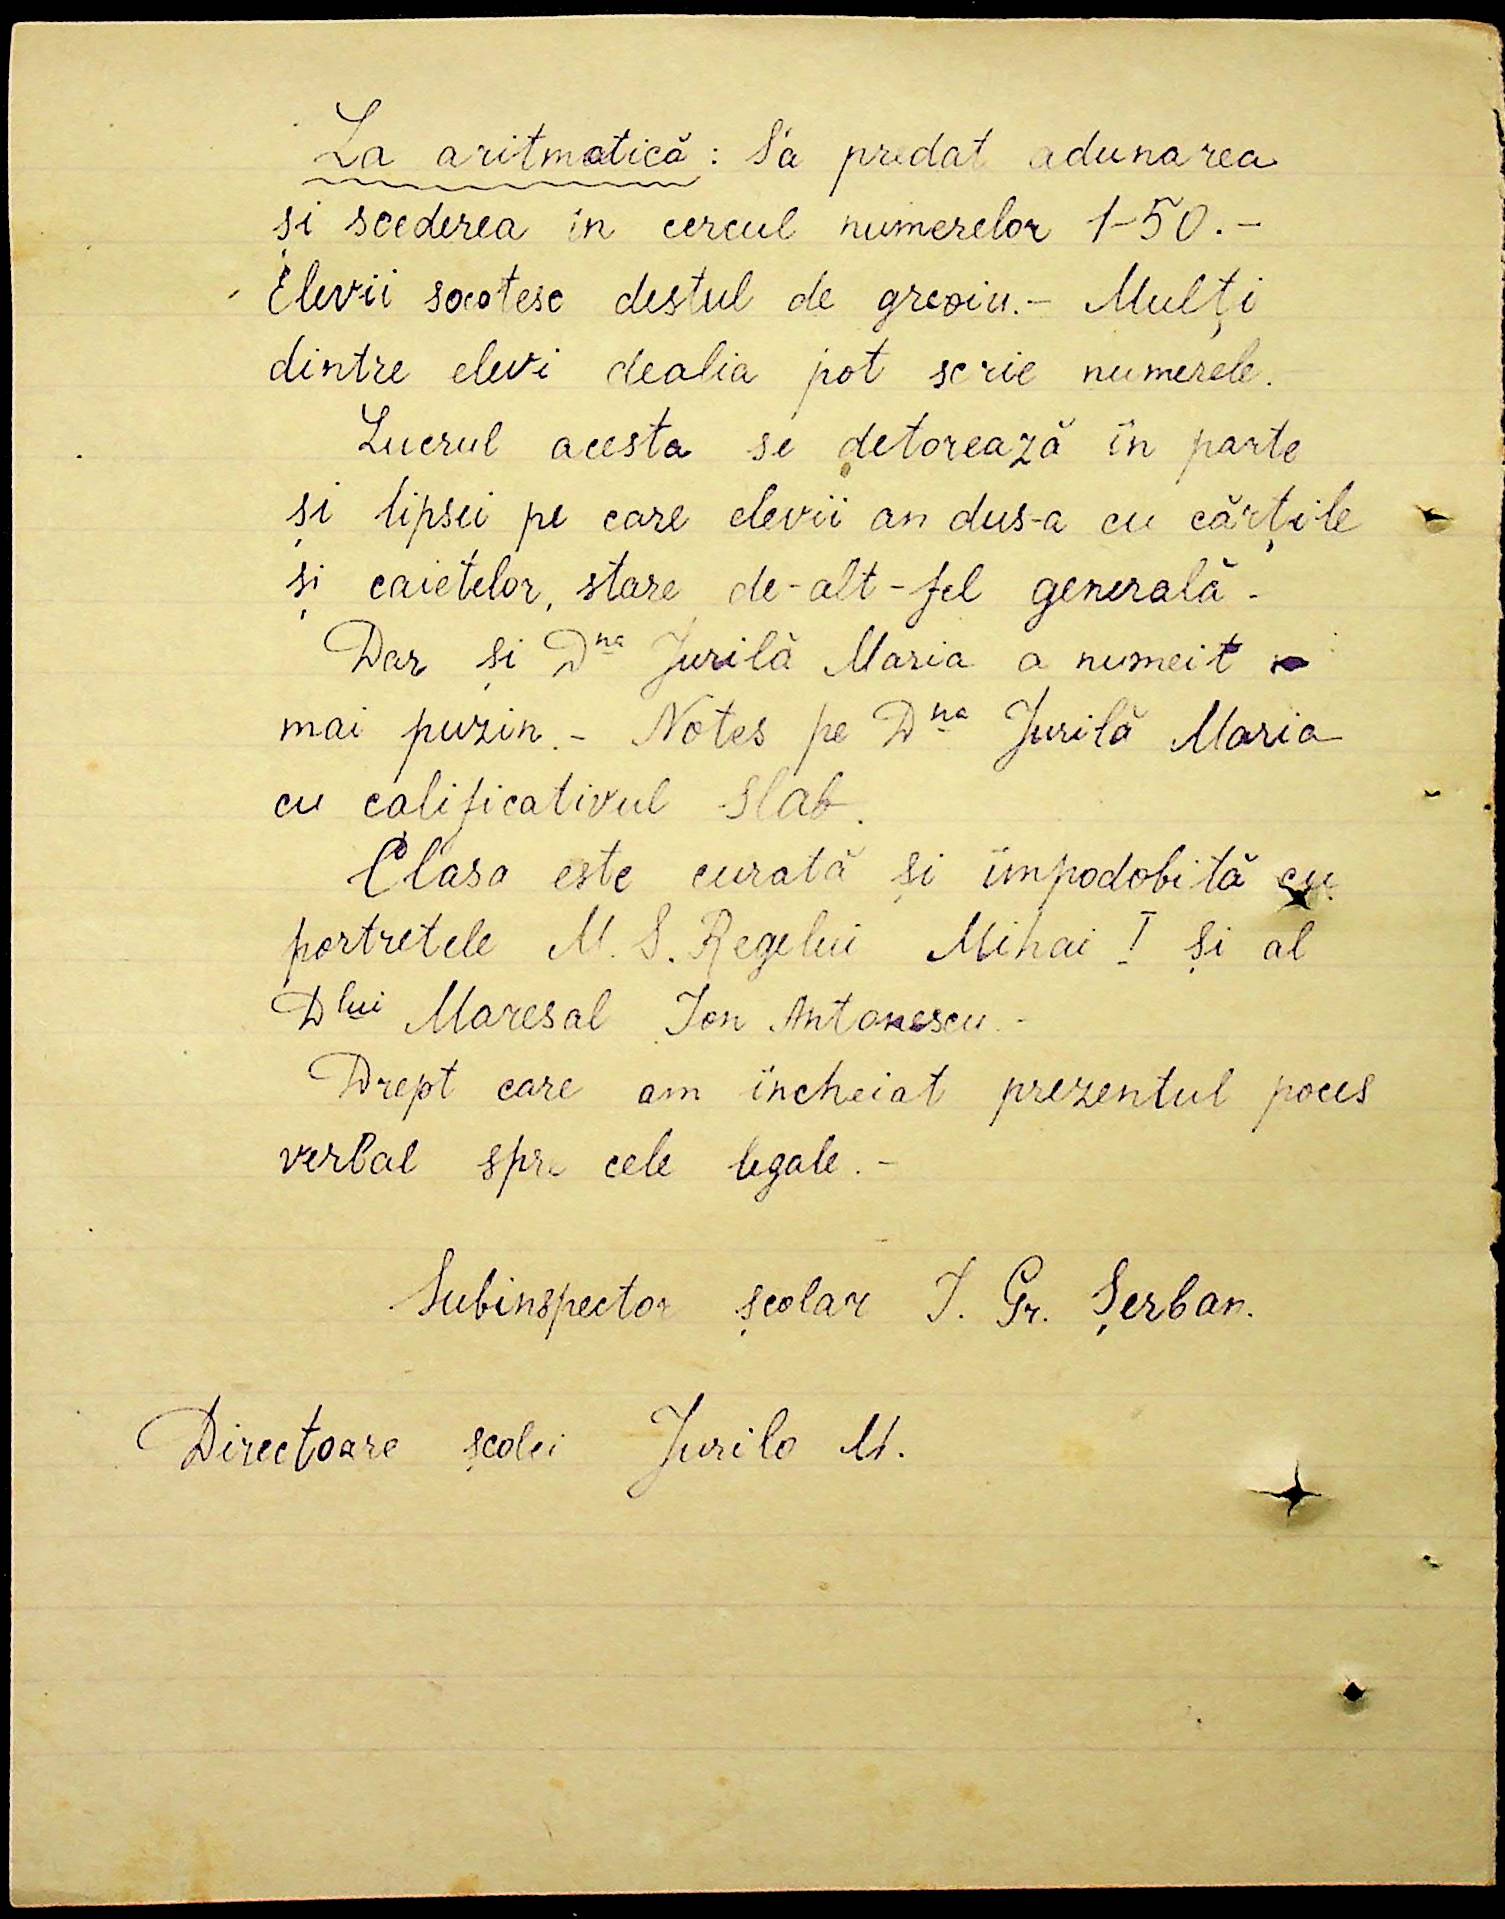 La aritmatică: S'a predat adunarea
și scederea în cercul numerelor 1-50.-
Elevii socotesc destul de greoiu.- Mulți
dintre elevi dealia pot scrie numerele.
Lucrul acesta se detorează în parte
și lipsei pe care elevii an dus-a cu cărțile
și caietelor, stare de-alt-fel generală-
Dar și Dna Jurilă Maria a numeit
mai puzin.- Notes pe Dna Jurilă Maria
cu calificativul Slab.
Clasa este curată și împodobită cu
portretele M. S. Regelui Mihai I și al
Dlui Maresal Ion Antonescu.-
Drept care am încheiat prezentul poces
verbal spre cele legale.-
Subinspector școlar I. Gr. Șerban.
Directoare școlei Jurilo M.